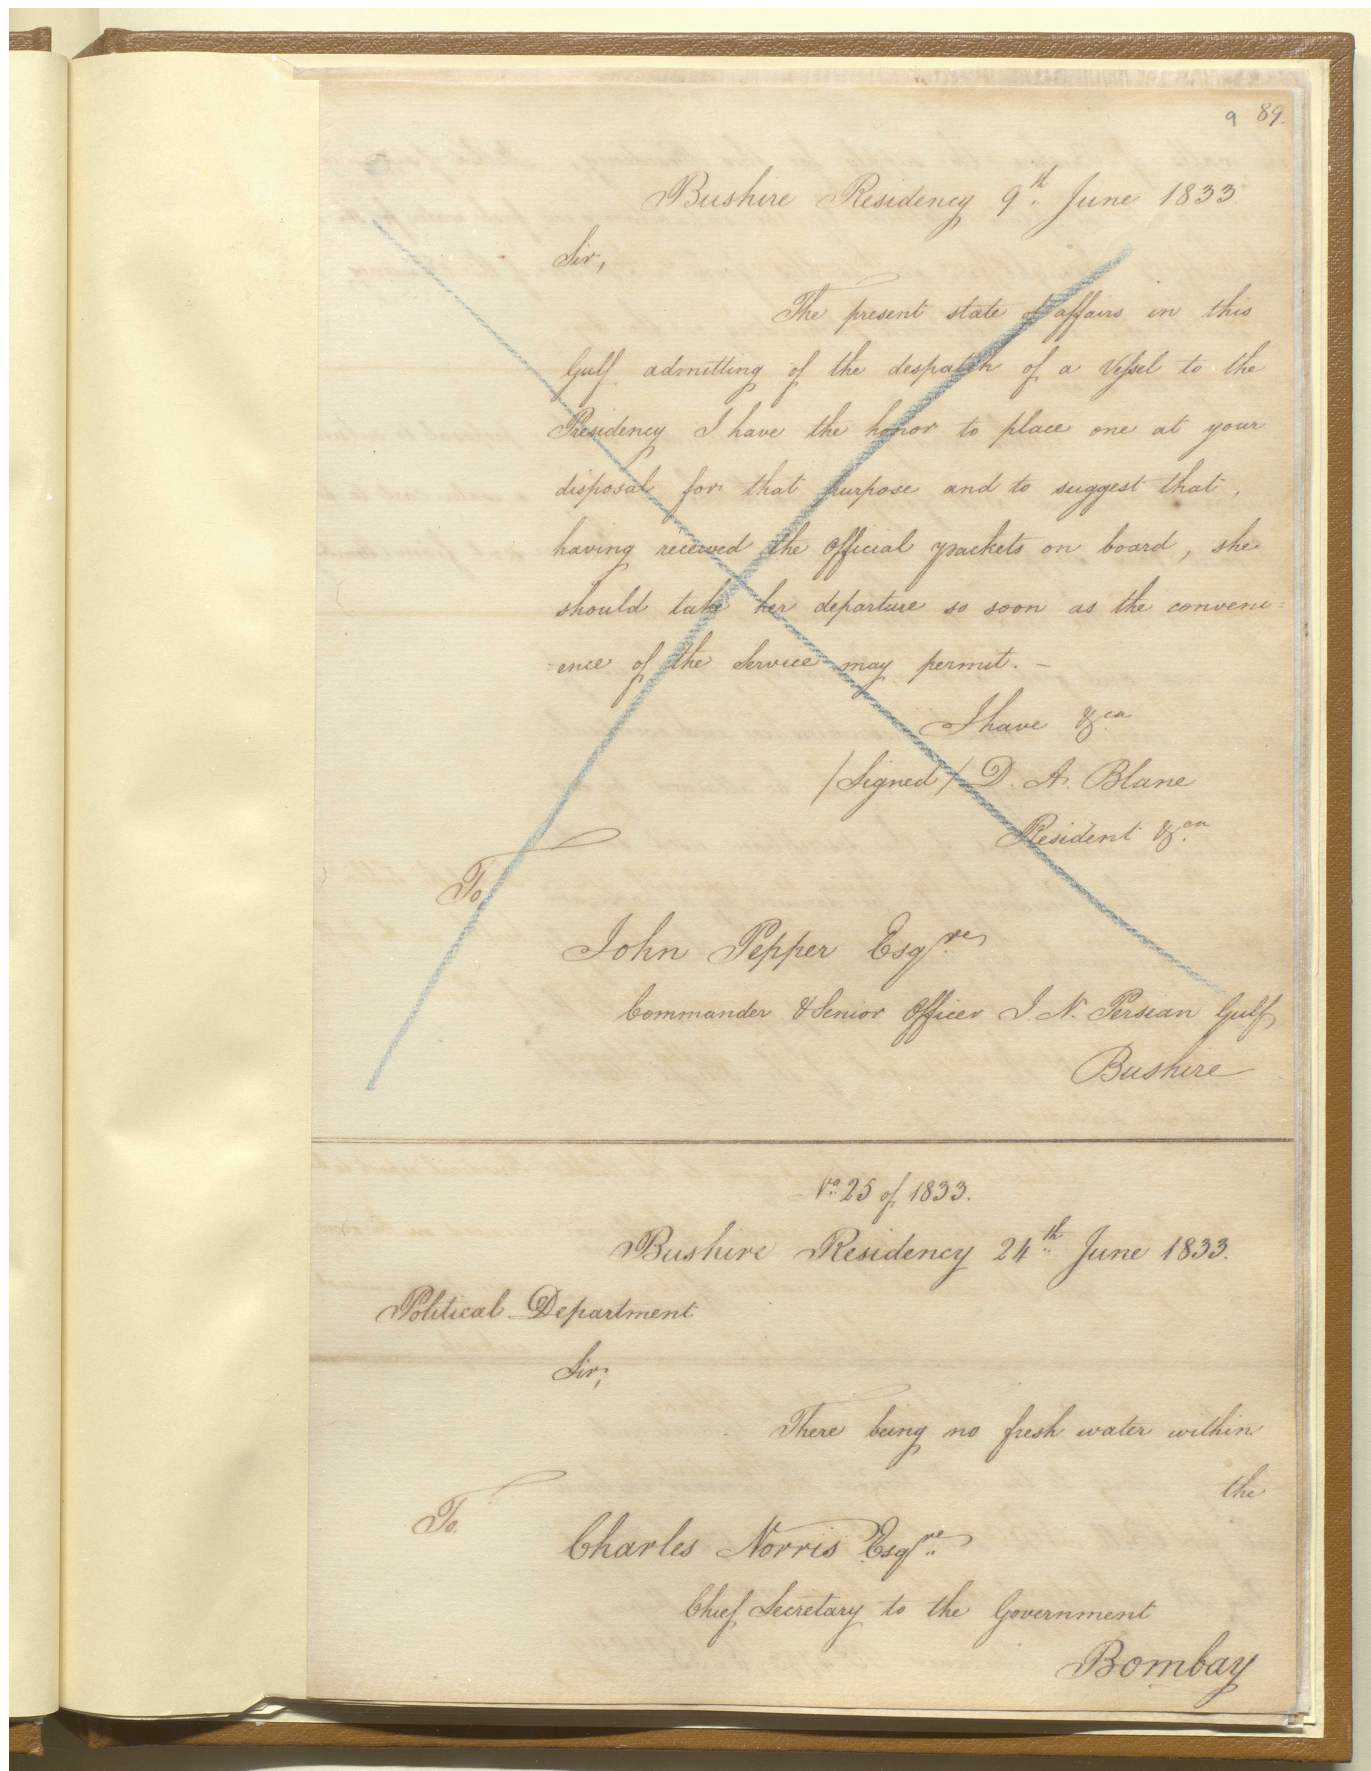 9 89.
Bushire Residency 9th June 1833
Sir,
The present state of affairs in this
Gulf admitting of the despatch of a Vessel to the
Presidency I have the honor to place one at your
disposal for that purpose and to suggest that,
having received the Official packets on board, she
should take her departure so soon as the conveni=
=ence of the Service may permit. –
I have &ca
/Signed/ D. A. Blane
Resident &ca
To
John Pepper Esqre
Commander & Senior Officer I. N. Persian Gulf
Bushire
No. 25 of 1833.
Bushire Residency 24th June 1833.
Political Department
Sir,
There being no fresh water within
the
To
Charles Norris Esqre
Chief Secretary to the Government
Bombay